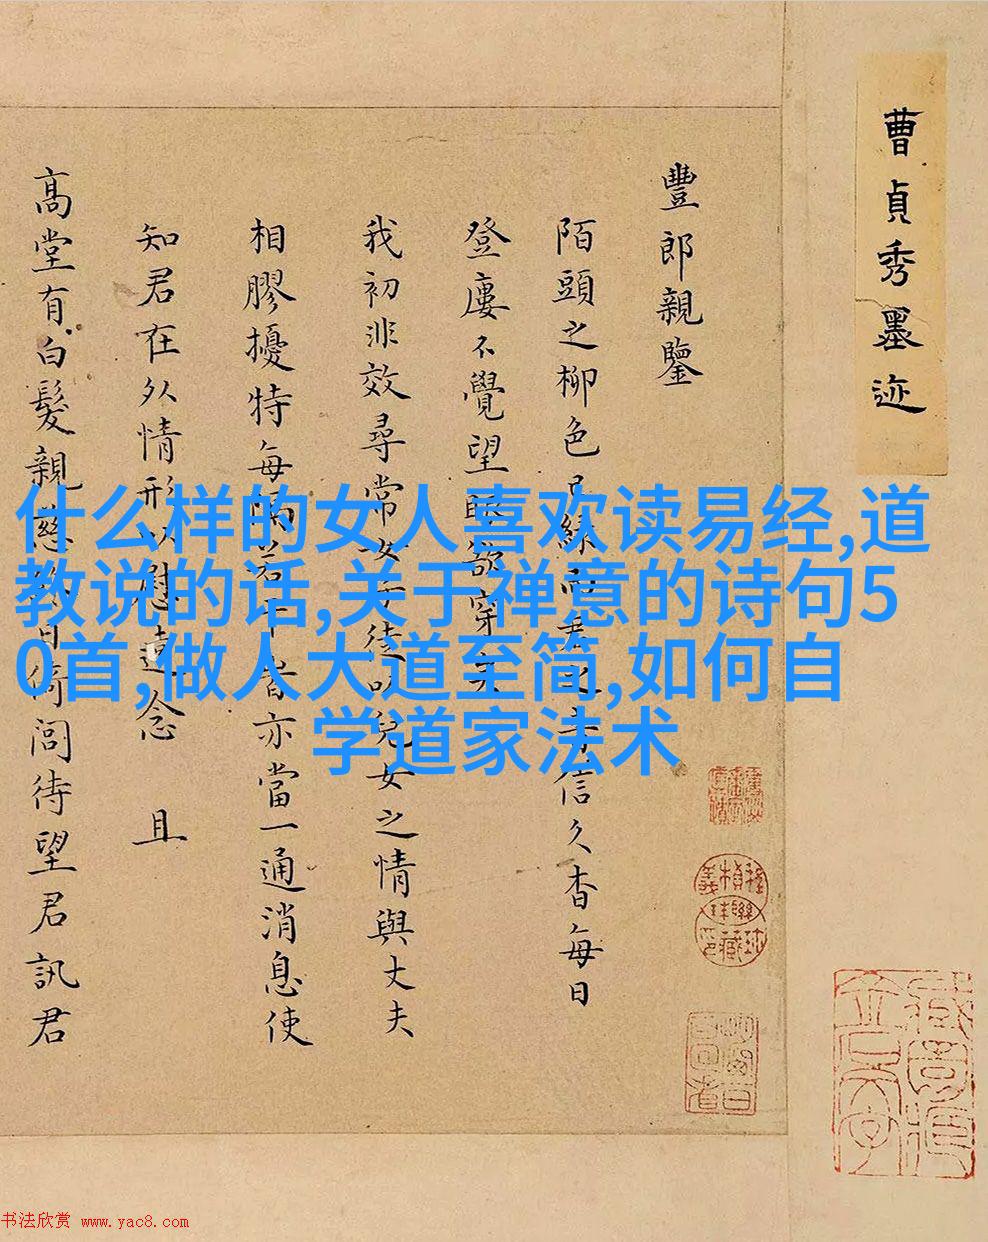 曹貞秀墨迹
豐郎親鑒
陌頭之柳色已綠而君之音信久杳每日
登廔不覺望眼欲穿矣
我初非效尋常女子徒以兒女之情與丈夫
相膠擾特每隔若干者亦當一通消息使
知君在外情形以慰遠念 且
高堂有白髮親慈日倚閭待望君訊君
什么样的女人喜欢读易经,道
教说的话,关于禅意的诗句5
0首,做人大道至简,如何自
学道家法术
书法欣赏 www.yac8.com